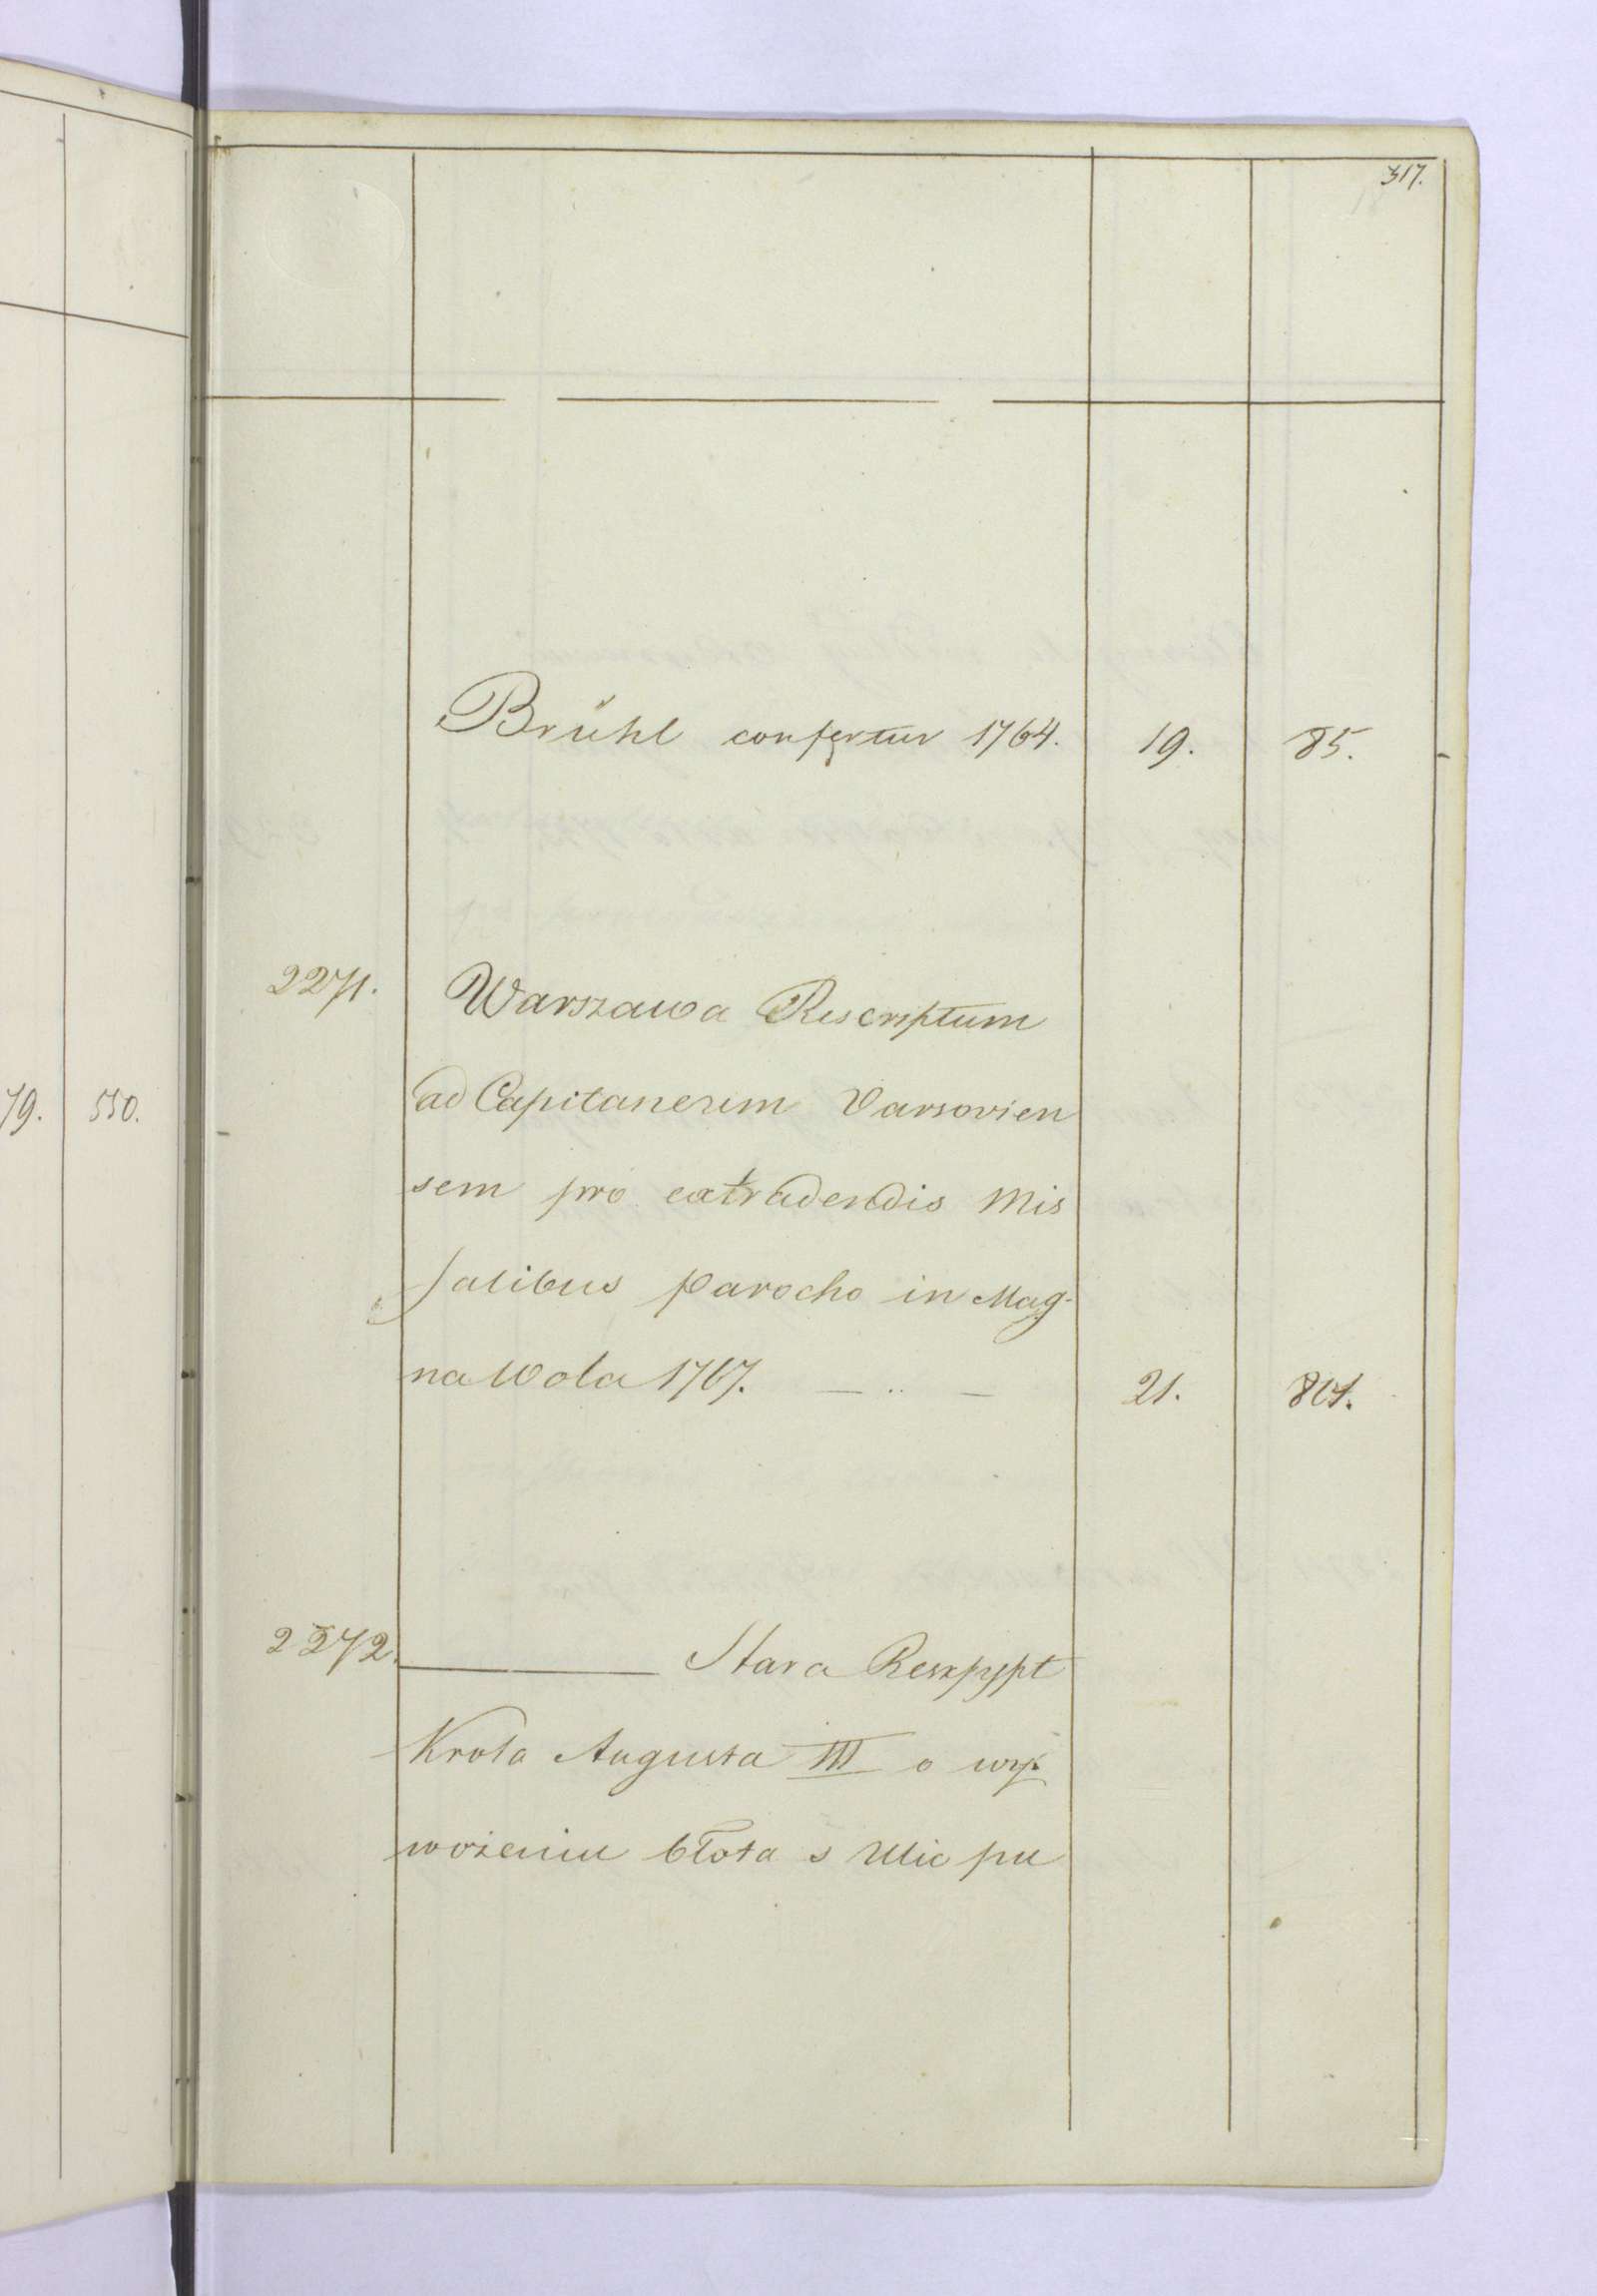 317.
Brühl confertur 1764. 19. 85.
2271. Warszawa Rescriptum
ad Capitaneum Varsovien
sem pro extradendis Mis
salibus parocho in Mag-
na Wola 1767. — .. — 21.
79. 550.
2272. ——— Stara Reskrypt
Krola Augusta III o wy-
wożeniu błota s Ulic pu